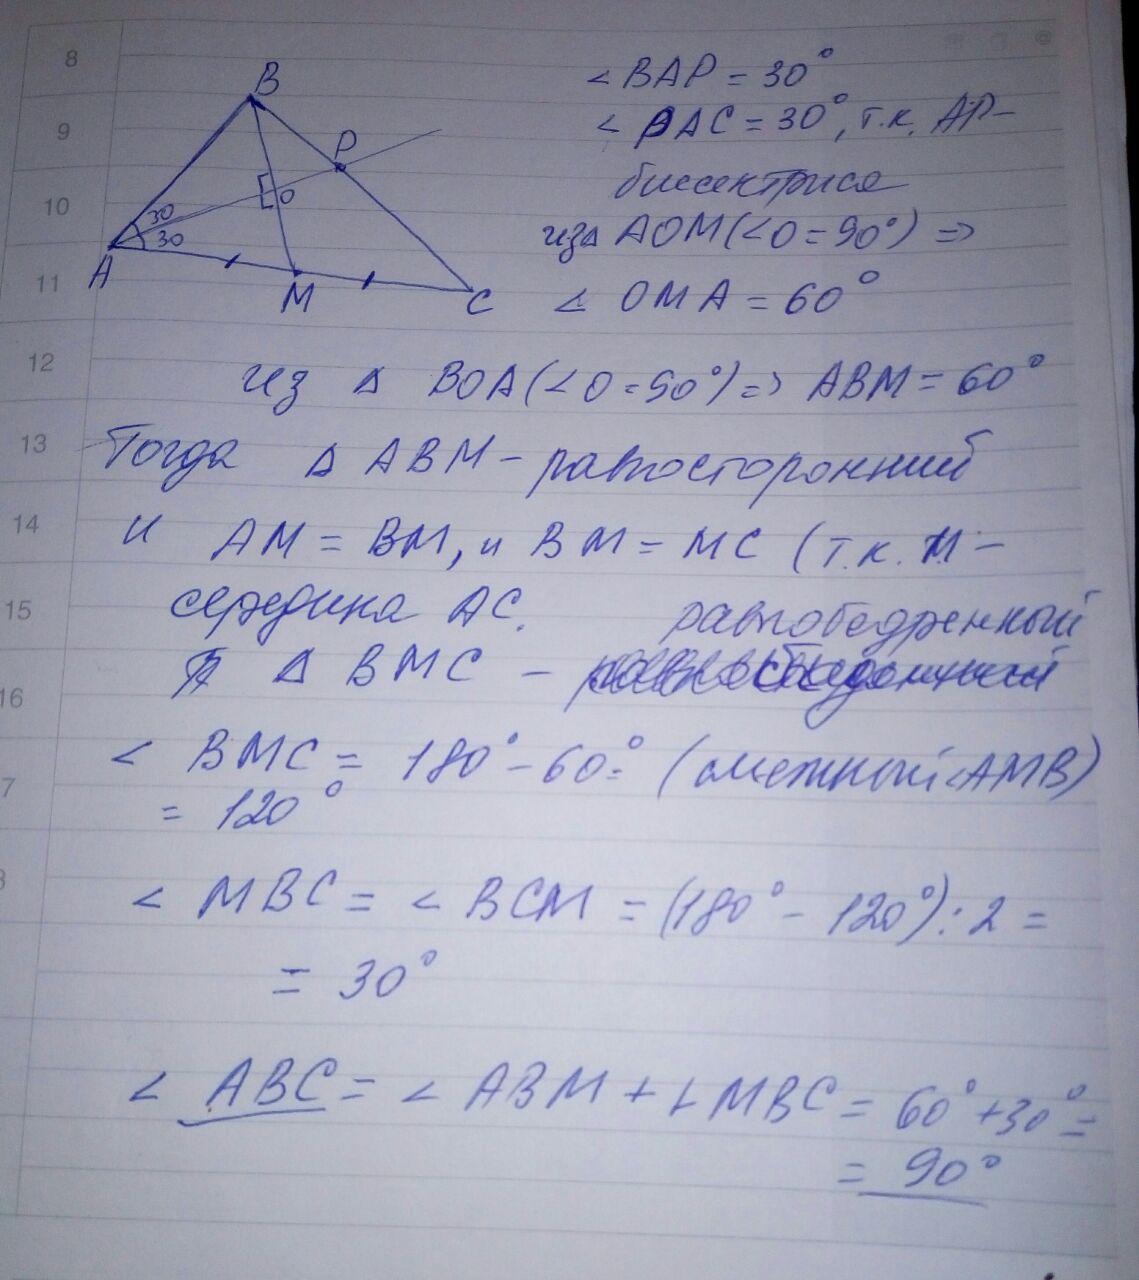 8
9
10
11
12
13
14
15
16
7
B
P
O
30
30
A
M
C
< BAP = 30°
< PAC = 30°, т.к. AP –
биссектриса
из ∆ AOM (<O = 90°) =>
∠ OMA = 60°
из ∆ BOA (<O = 90°) => ABM = 60°
Тогда ∆ ABM – равносторонний
и AM = BM, и BM = MC (т.к. M –
середина AC.
равнобедренный
∆ BMC –
< BMC = 180° – 60° = (смежный < AMB)
= 120°
< MBC = < BCM = (180° – 120°) : 2 =
= 30°
< ABC = < ABM + ∠ MBC = 60° + 30° =
= 90°